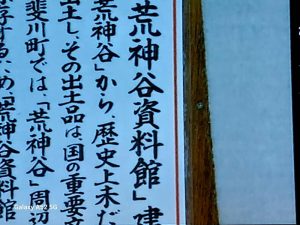 荒神谷資料館」建
荒神谷」から、歴史上未だ
出土し、その出土品は、国の重要文
斐川町では、「荒神谷」周辺
保存するため「荒神谷資料館
Galaxy A52 5G